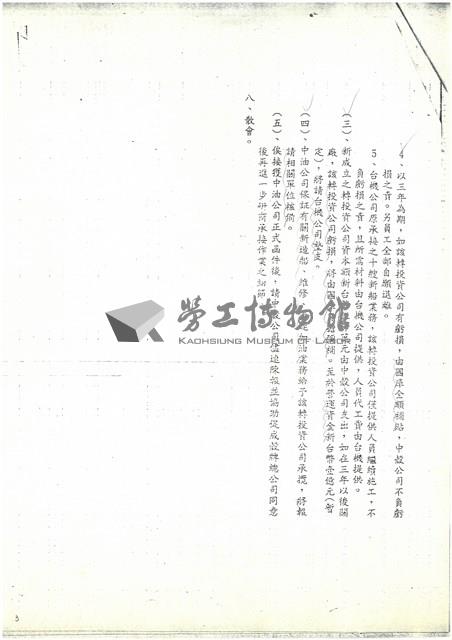 4、以三年為期，如該轉投資公司有虧損，由國庫全額補貼，中殼公司不負虧
損之責。另員工全部自願退離。
5、台機公司原承接之十艘新船業務，該轉投資公司僅提供人員繼續施工，不
負虧損之責，且所需材料由台機公司提供，人員代工費由台機提供。
(三)、新成立之轉投資公司資本額新台 元由中殼公司支出，如在三年以後關
廠，該轉投資公司虧損，將由國 彌補。至於營運資金新台幣壹億元(暫
定)，將請台機公司墊支。
(四)、中油公司保証有關新造船、維修 油業務給予該轉投資公司承攬，將報
請相關單位核備。
(五)、俟接獲中油公司正式函件後，請中殼公司儘速陳報並協助促成殼牌總公司同意
後再進一步研商承接作業之細節
八、散會。
勞工博物館
KAOHSIUNG MUSEUM OF LABOR
3